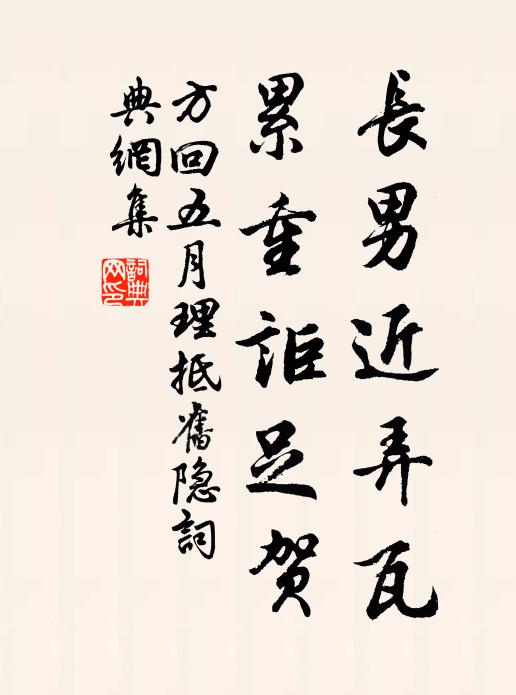 長男近弄瓦
累重詎足賀
方回五月理抵舊隐詞
典網集
詞典網印